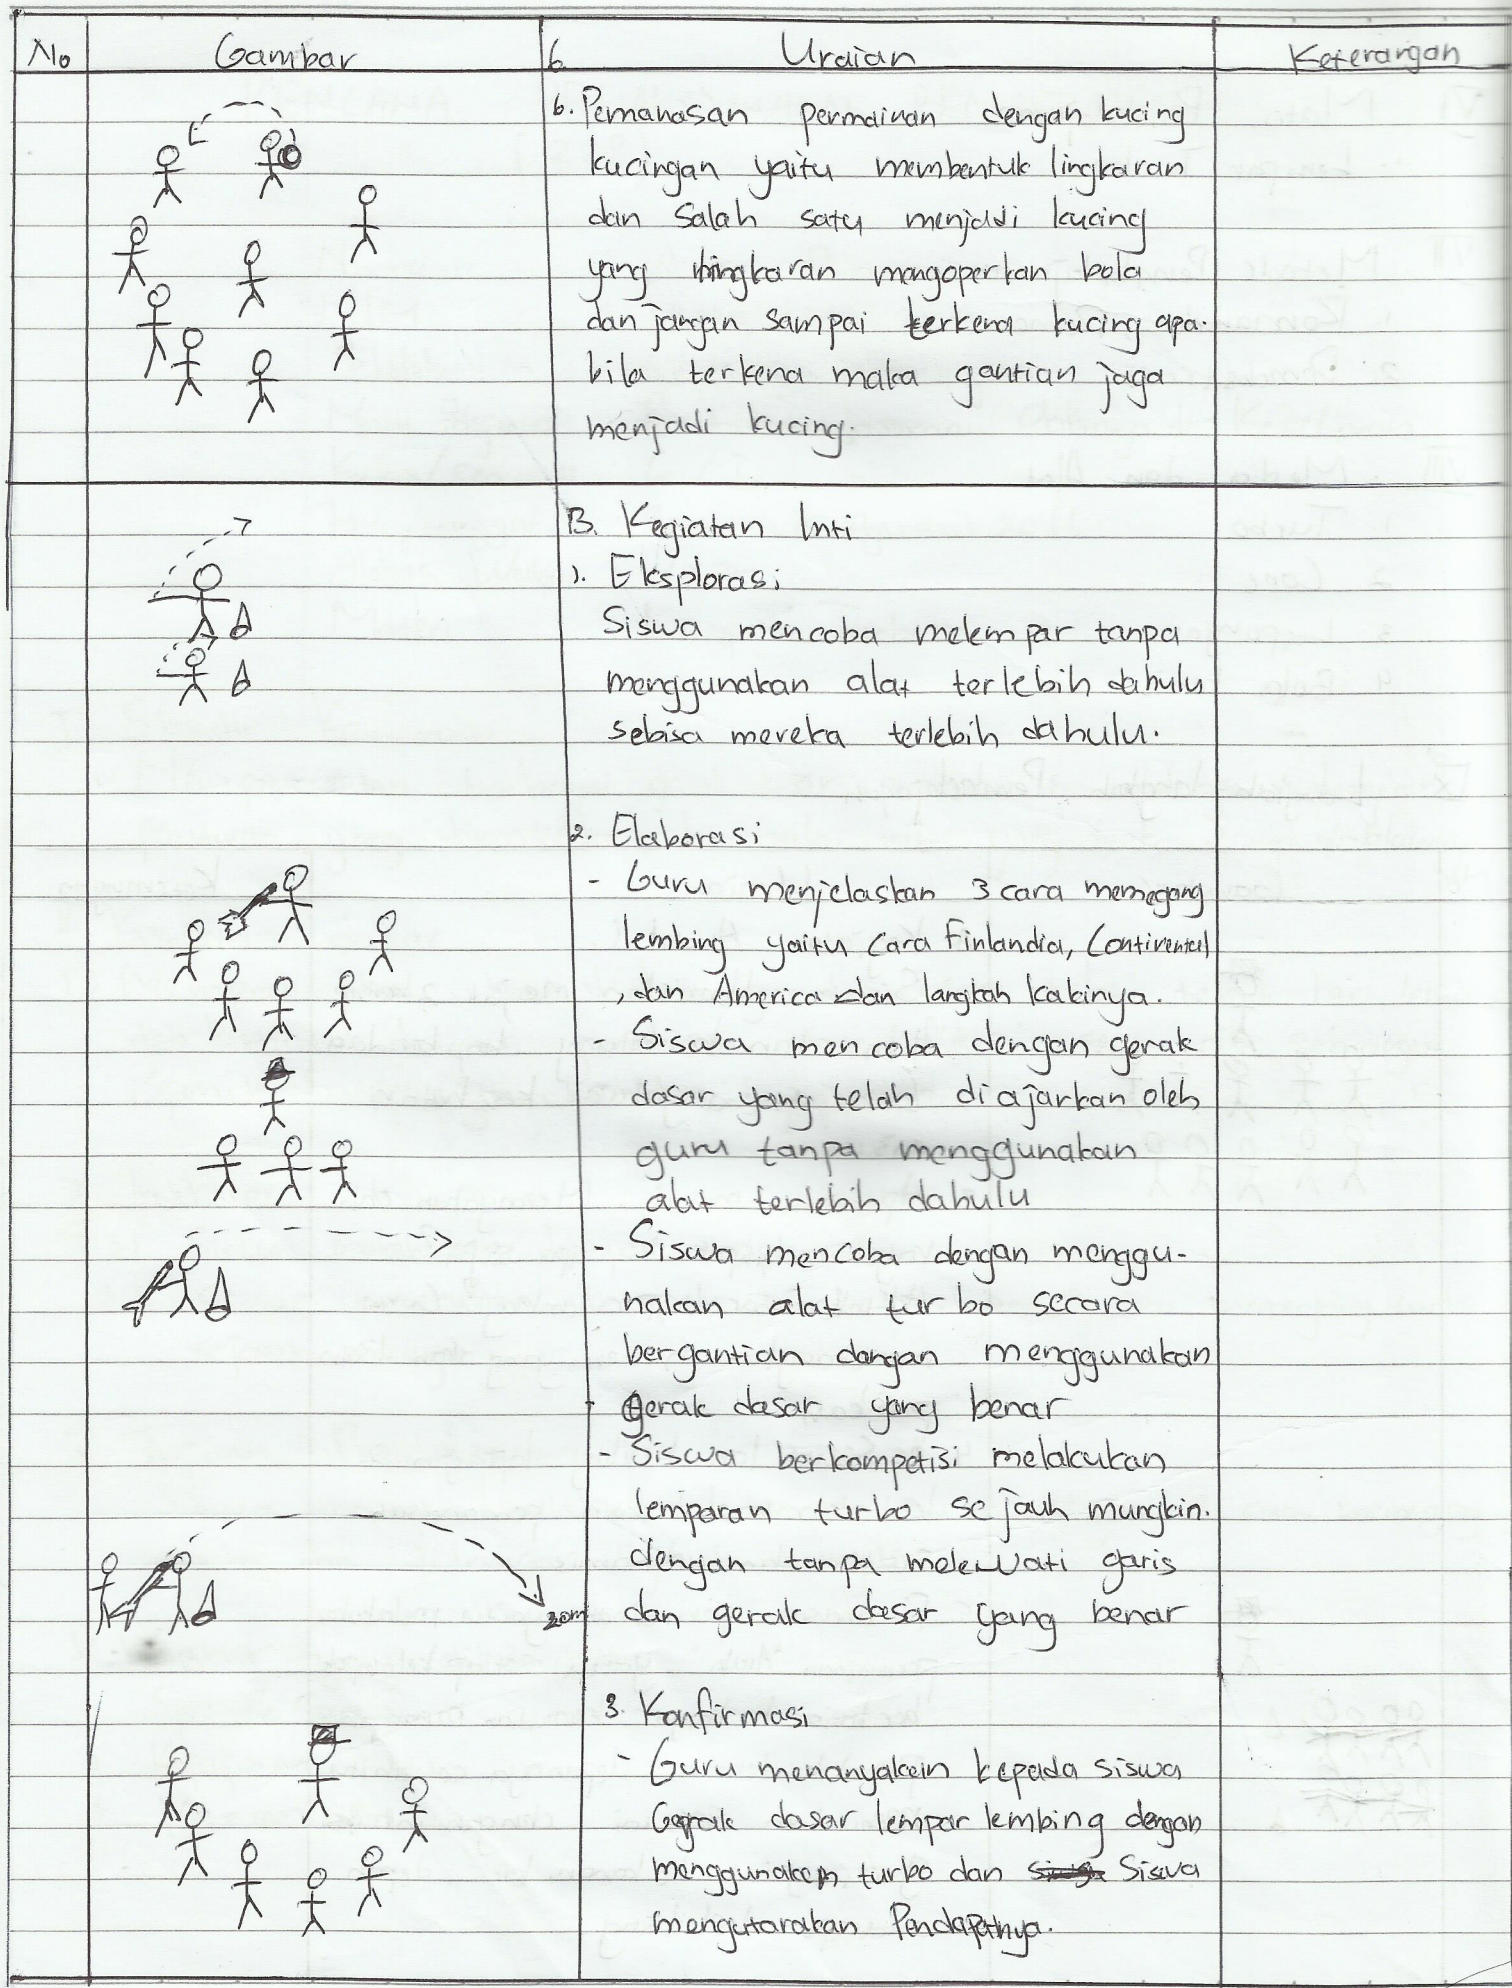 No Gambar 6 Uraian Keterangan
6. Pemanasan permainan dengan kucing
kucingan yaitu membentuk lingkaran
dan salah satu menjadi kucing
yang lingkaran mengoperkan bola
dan jangan sampai terkena kucing apa-
bila terkena maka gantian jaga
menjadi kucing.
B. Kegiatan Inti
1. Eksplorasi
Siswa mencoba melempar tanpa
menggunakan alat terlebih dahulu
sebisa mereka terlebih dahulu.
2. Elaborasi
- Guru menjelaskan 3 cara memegang
lembing yaitu Cara Finlandia, Continental
, dan America dan langkah kakinya.
- Siswa mencoba dengan gerak
dasar yang telah diajarkan oleh
guru tanpa menggunakan
alat terlebih dahulu
- Siswa mencoba dengan menggu-
nakan alat turbo secara
bergantian dengan menggunakan
gerak dasar yang benar
- Siswa berkompetisi melakukan
lemparan turbo sejauh mungkin.
dengan tanpa melewati garis
30m dan gerak dasar yang benar
3. Konfirmasi
- Guru menanyakan kepada siswa
Gerak dasar lempar lembing dengan
menggunakan turbo dan Siswa
mengutarakan Pendapatnya.